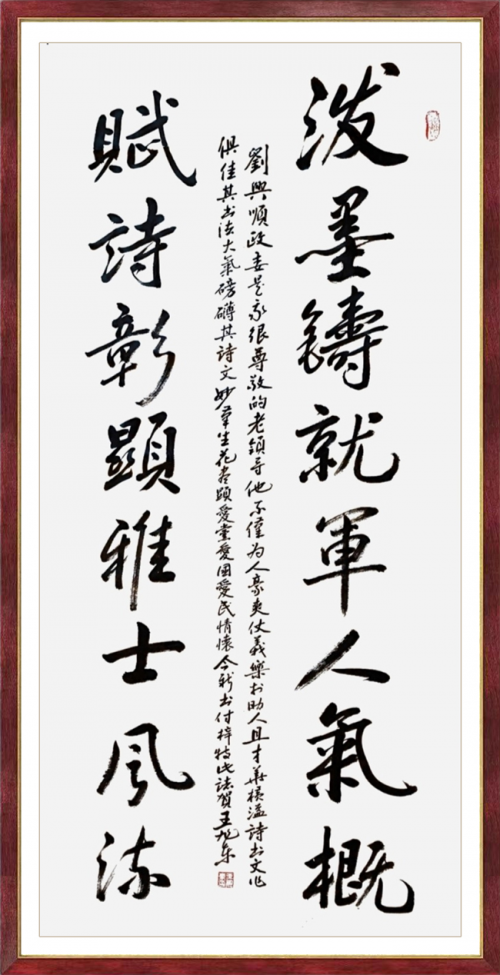 泼墨鑄就軍人氣概
劉興順政委是我很尊敬的老領导他不僅为人豪爽仗義樂於助人且才華横溢詩书文作
俱佳其书法大氣磅礴其詩文妙筆生花尽顕愛黨愛国愛民情懷今新书付梓特此誌賀王东
賦詩彰顯雅士風流